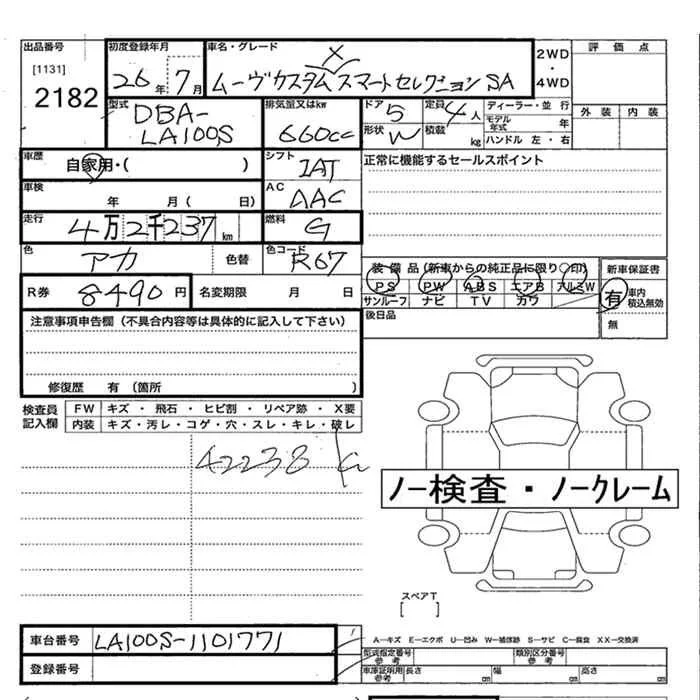 出品番号 初度登録年月 車名・グレード 2WD・4WD 評価点
[1131]
2182 26年7月 ムーヴカスタムXスマートセレクションSA
外装 内装
型式 DBA-LA100S 排気量又はkw 660cc ドア 5 形状 W 定員 4人 積載 kg
ディーラー・並行
モデル年式 年
ハンドル 左・右
車歴 自家用・( ) シフト IAT
正常に機能するセールスポイント
車検 年 月( 日) AC AAC
走行 4万2千237km 燃料 G
色 アカ 色替 色コード R67
装備品(新車からの純正品に限り○印)
PS PW ABS エアB アルミW
サンルーフ ナビ TV カワ
新車保証書
有 車内積込無効
無
R券 8490円 名変期限 月 日
後日品
注意事項申告欄(不具合内容等は具体的に記入して下さい)
修復歴 有(箇所 )
検査員記入欄
FW キズ・飛石・ヒビ割・リペア跡・X要
内装 キズ・汚レ・コゲ・穴・スレ・キレ・破レ
42238
ノー検査・ノークレーム
スペアT
[ ]
車台番号 LA100S-1101771
A―キズ E―エクボ U―凹み W―補修跡 S―サビ C―腐食 XX―交換済
登録番号
型式指定番号参考 類別区分番号参考
車庫証明用参考 長さ cm 幅 cm 高さ cm